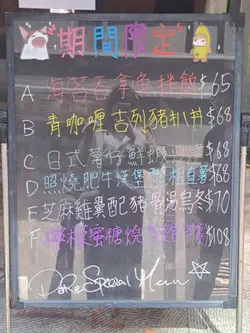 期間限定
A 海苔吞拿魚拌飯 $65
B 青咖喱吉列豬扒丼 $68
C 日式薯仔鮮蝦 $68
D 照燒肥牛漢堡 $88
E 芝麻雞翼配豬骨湯烏冬 $70
F 檸檬蜜糖燒 $108
Special Menu